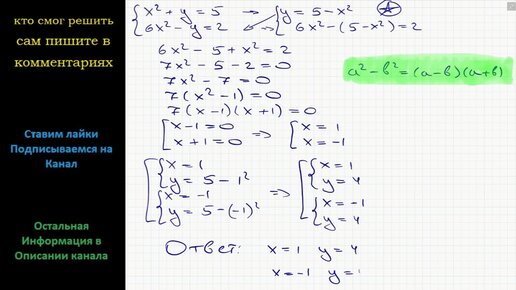 кто смог решить
сам пишите в
комментариях
Ставим лайки
Подписываемся на
Канал
Остальная
Информация в
Описании канала
{ x² + y = 5 → { y = 5 - x²
{ 6x² - y = 2 { 6x² - (5 - x²) = 2
6x² - 5 + x² = 2
7x² - 5 - 2 = 0
7x² - 7 = 0
7(x² - 1) = 0
7(x - 1)(x + 1) = 0
a² - b² = (a - b)(a + b)
[ x - 1 = 0 ⇒ [ x = 1
[ x + 1 = 0 [ x = -1
[ { x = 1 ⇒ [ { x = 1
{ y = 5 - 1² { y = 4
{ x = -1 { x = -1
{ y = 5 - (-1)² { y = 4
Ответ: x = 1 y = 4
x = -1 y =